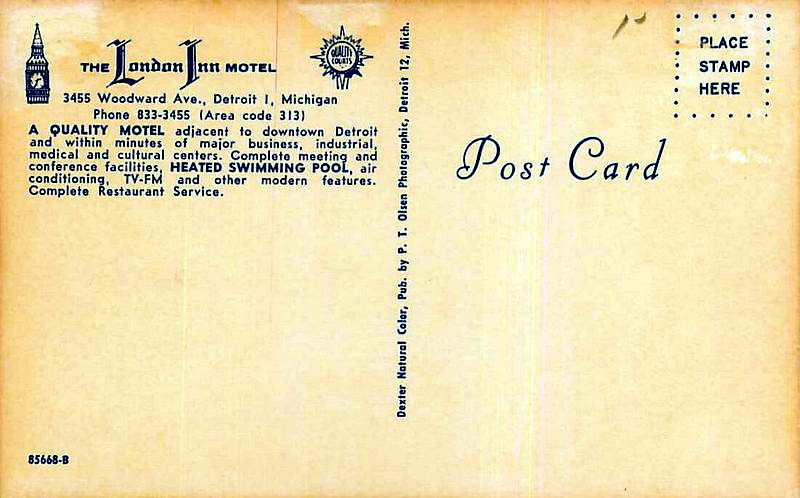 THE London Inn MOTEL
QUALITY
COURTS
3455 Woodward Ave., Detroit 1, Michigan
Phone 833-3455 (Area code 313)
A QUALITY MOTEL adjacent to downtown Detroit
and within minutes of major business, industrial,
medical and cultural centers. Complete meeting and
conference facilities, HEATED SWIMMING POOL, air
conditioning, TV-FM and other modern features.
Complete Restaurant Service.
85668-B
Dexter Natural Color, Pub. by P. T. Olsen Photographic, Detroit 12, Mich.
PLACE
STAMP
HERE
Post Card